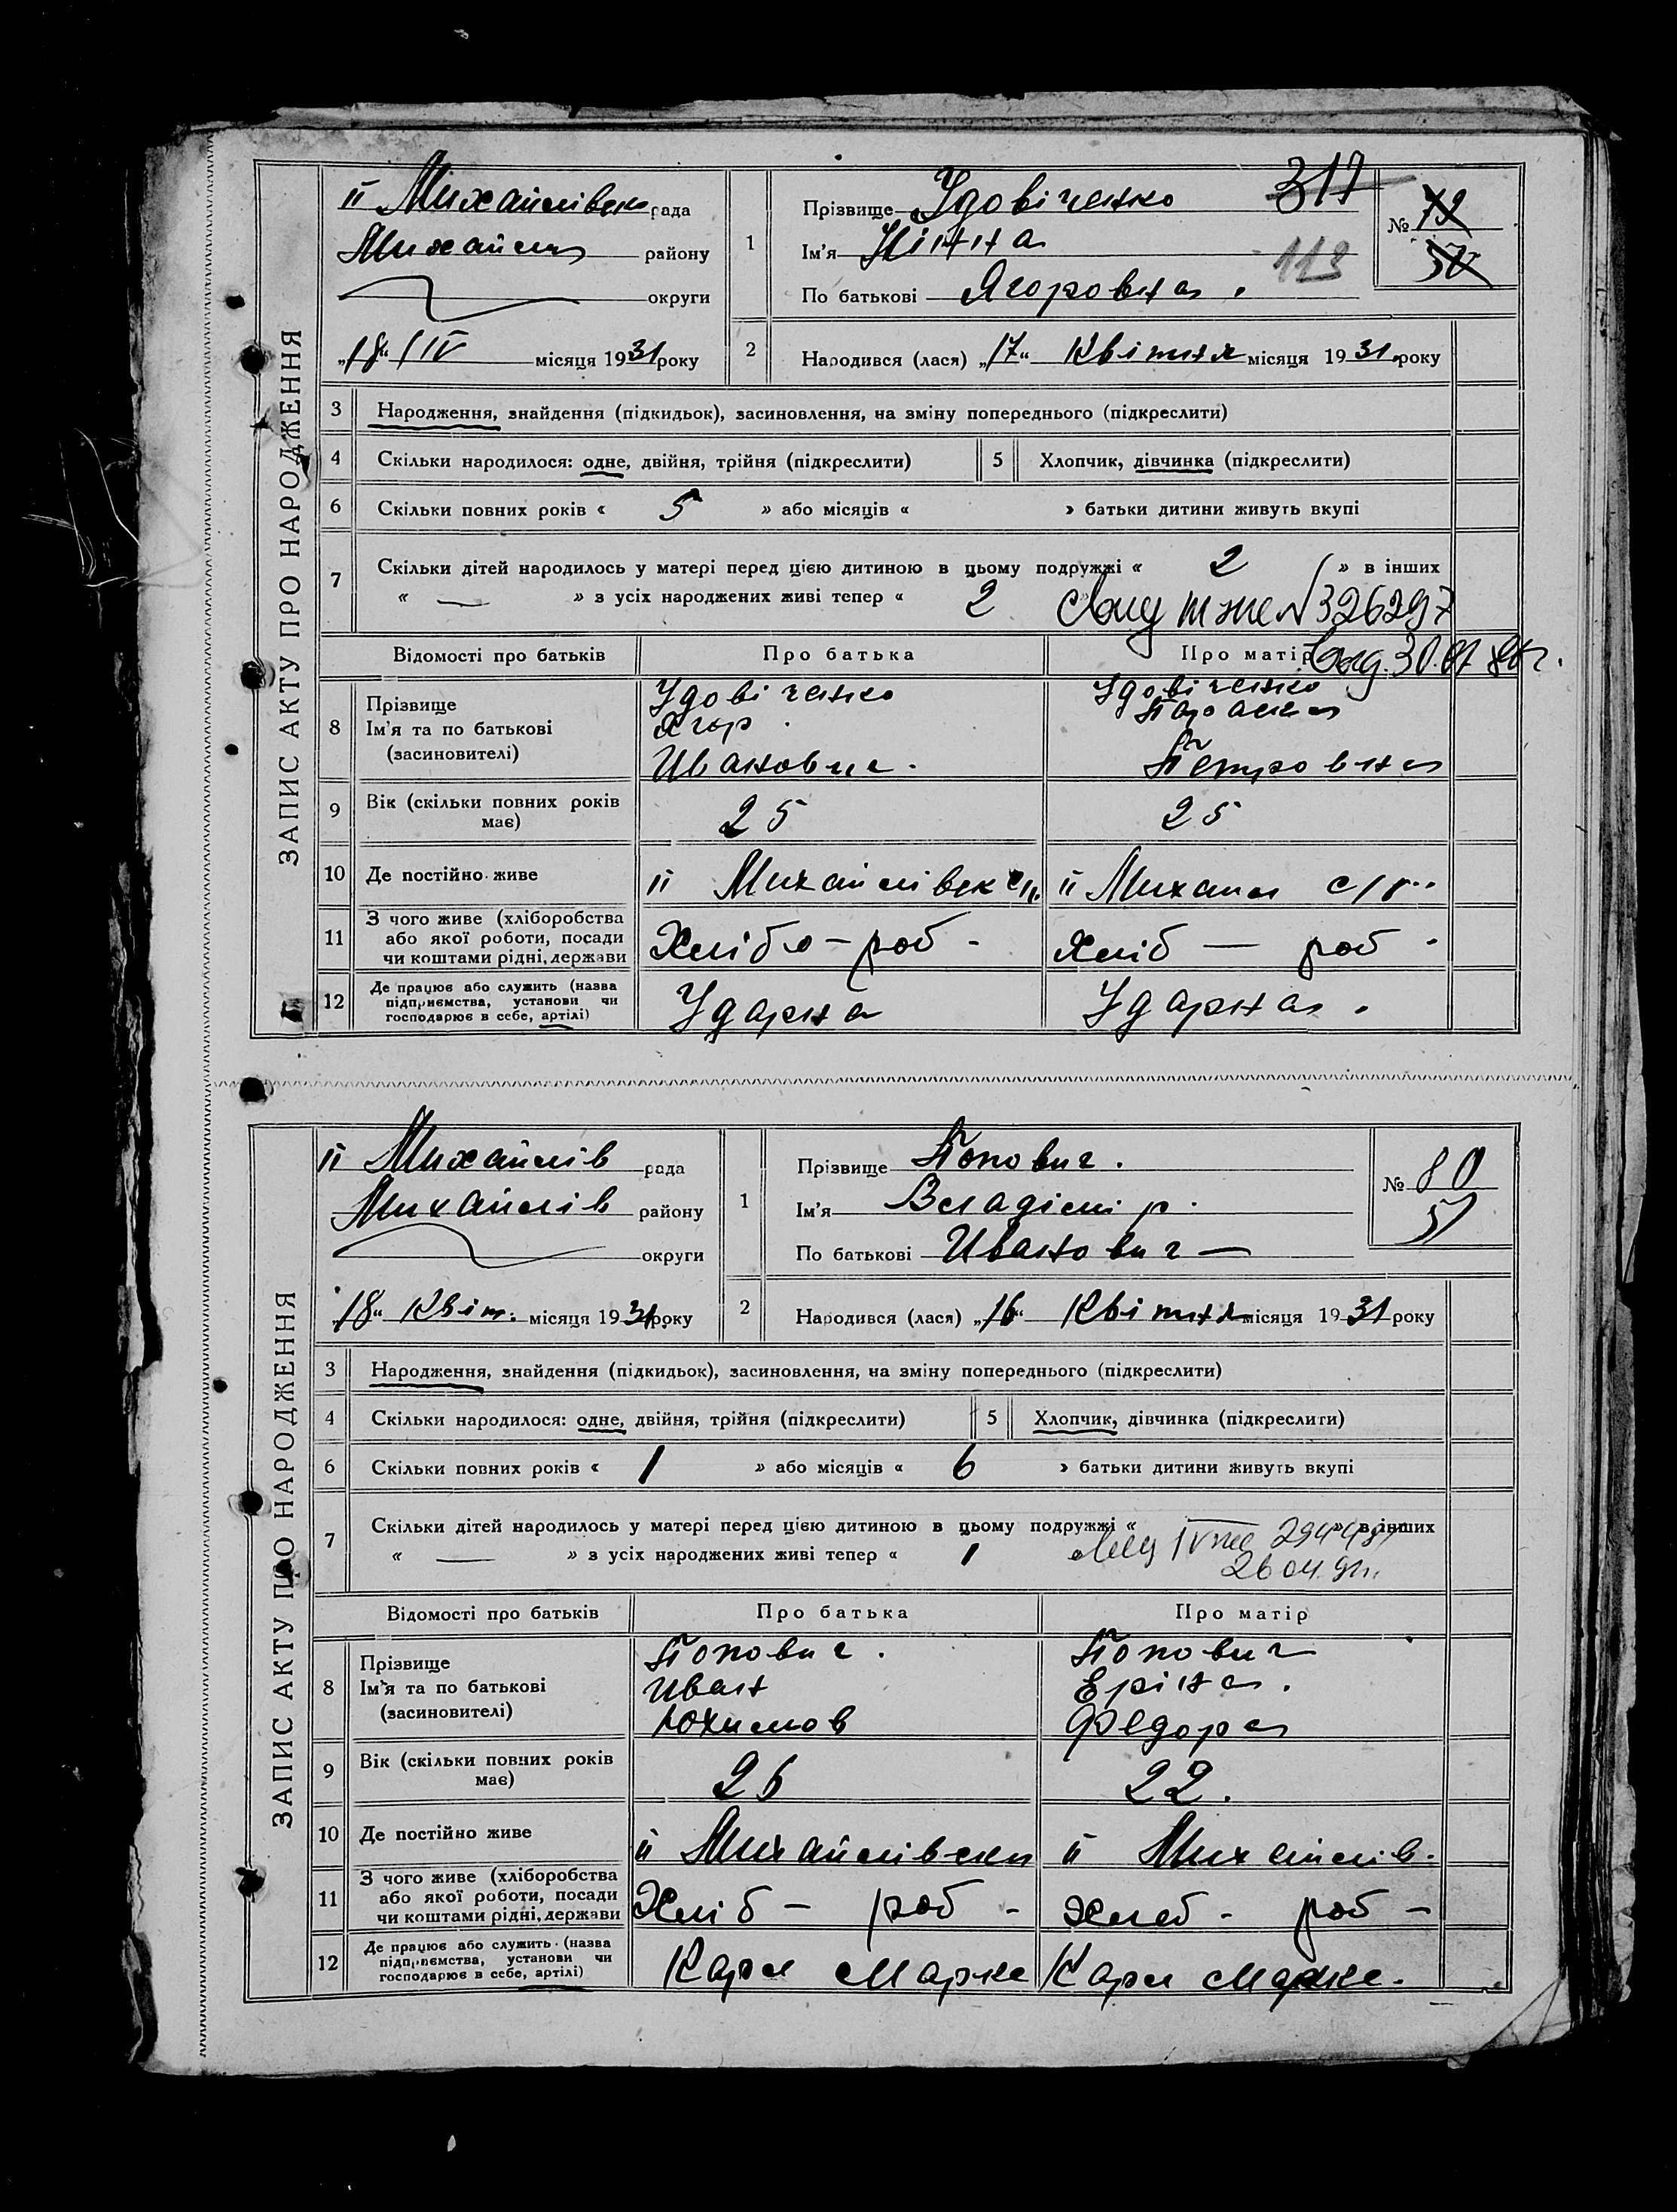 ЗАПИС АКТУ ПРО НАРОДЖЕННЯ
ІІ Михайлівск рада
Михайлів району
округи
„18“ IV місяця 1931 року
1
Прізвище Удовіченко
317
Ім'я Нінна
113
По батькові Ягоровна.
№ 79
2 Народився (лася) „17“ Квітня місяця 1931 року
3 Народження, знайдення (підкидьок), засиновлення, на зміну попереднього (підкреслити)
4 Скільки народилося: одне, двійня, трійня (підкреслити) 5 Хлопчик, дівчинка (підкреслити)
6 Скільки повних років « 5 » або місяців « » батьки дитини живуть вкупі
7 Скільки дітей народилось у матері перед цією дитиною в цьому подружжі « 2 » в інших
« — » з усіх народжених живі тепер « 2
№ 326297
30.07.86г.
Відомості про батьків Про батька Про матір
8 Прізвище
Ім'я та по батькові
(засиновителі)
Удовіченко
Ягор.
Иванович.
Удовіченко
Параска
Петровна
9 Вік (скільки повних років має) 25 25
10 Де постійно живе ІІ Михайлівск с/р. ІІ Михайл с/р..
11 З чого живе (хліборобства
або якої роботи, посади
чи коштами рідні, держави
Хлібо-роб - Хліб — роб -
12 Де працює або служить (назва
підприємства, установи чи
господарює в себе, артілі)
Ударна Ударна.
ЗАПИС АКТУ ПРО НАРОДЖЕННЯ
ІІ Михайлів рада
Михайлів району
округи
„18“ Квіт. місяця 1931 року
1
Прізвище Попович.
Ім'я Владімір.
По батькові Иванович —
№ 80
51
2 Народився (лася) „16“ Квітня місяця 1931 року
3 Народження, знайдення (підкидьок), засиновлення, на зміну попереднього (підкреслити)
4 Скільки народилося: одне, двійня, трійня (підкреслити) 5 Хлопчик, дівчинка (підкреслити)
6 Скільки повних років « 1 » або місяців « 6 » батьки дитини живуть вкупі
7 Скільки дітей народилось у матері перед цією дитиною в цьому подружжі « — » в інших
« — » з усіх народжених живі тепер « 1
26.04.91г.
Відомості про батьків Про батька Про матір
8 Прізвище
Ім'я та по батькові
(засиновителі)
Попович.
Иван
Юхимов
Попович
Еріна.
Федора
9 Вік (скільки повних років має) 26 22.
10 Де постійно живе ІІ Михайлівски ІІ Михайлів.
11 З чого живе (хліборобства
або якої роботи, посади
чи коштами рідні, держави
Хліб - роб - Хлеб - роб -
12 Де працює або служить (назва
підприємства, установи чи
господарює в себе, артілі)
Карл Маркс Карл Маркс.